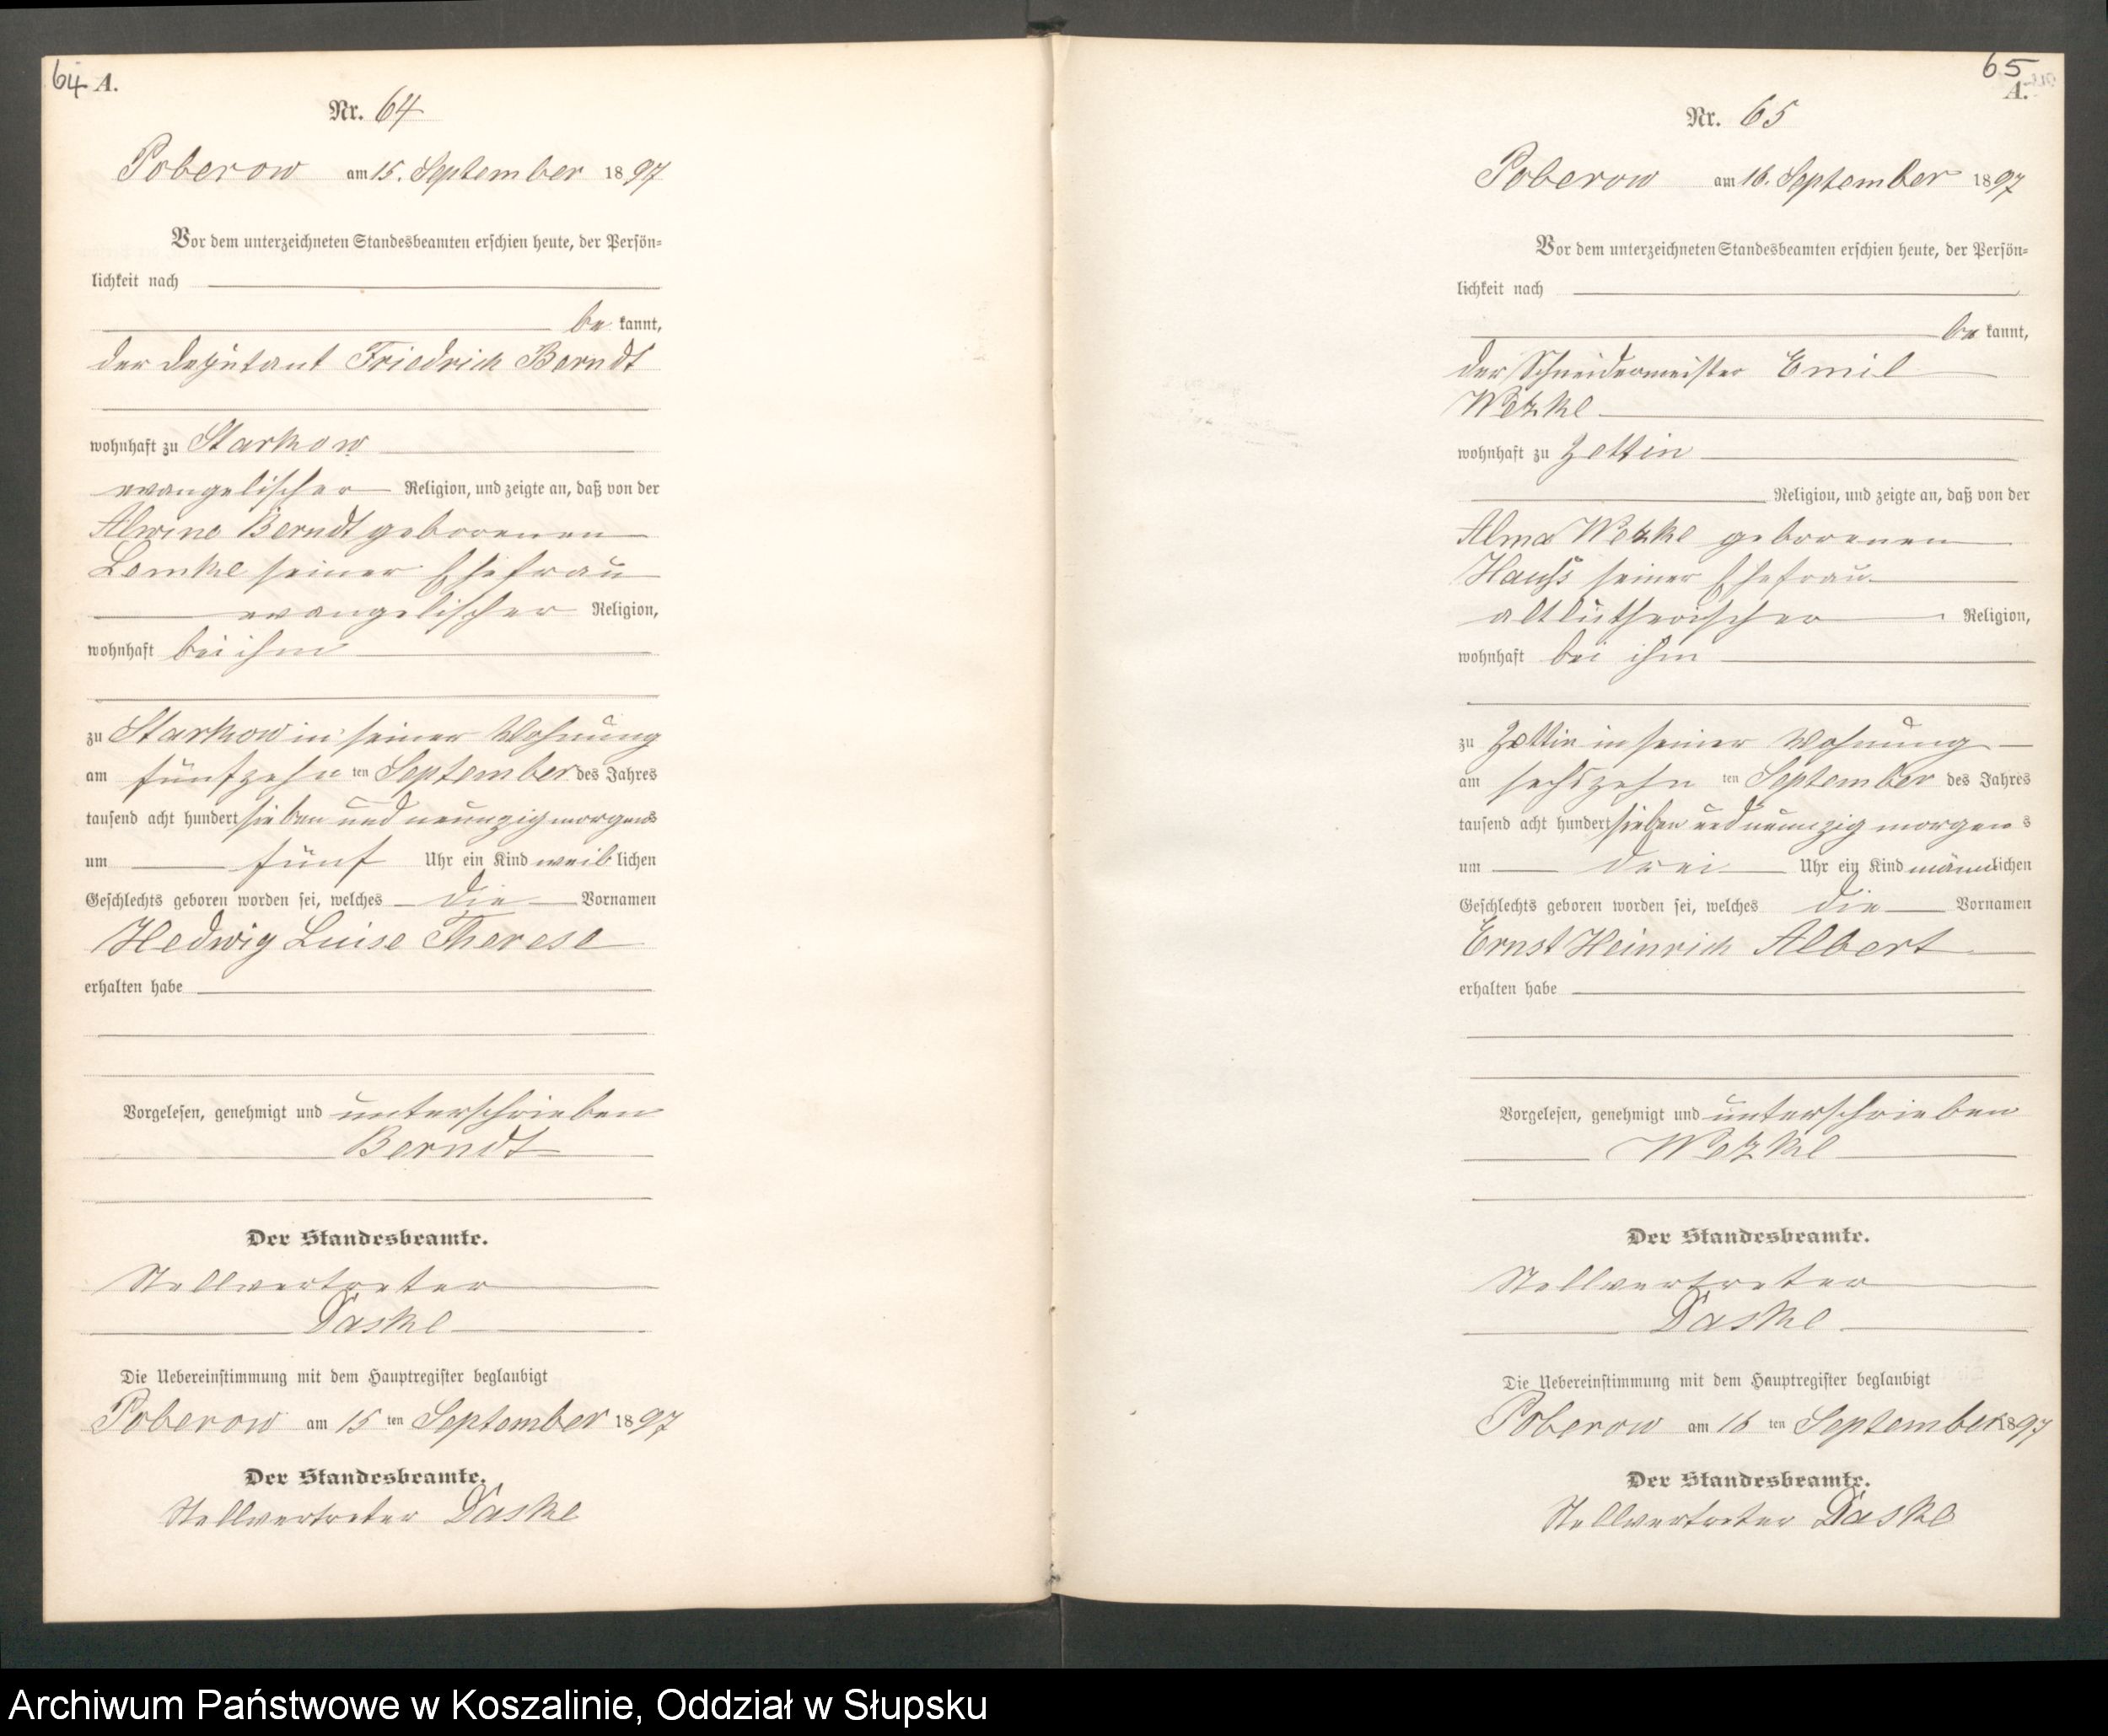 64 A.
Nr. 64
Poberow am 15. September 1897
Vor dem unterzeichneten Standesbeamten erschien heute, der Persön=
lichkeit nach
be kannt,
der Deputant Friedrich Berndt
wohnhaft zu Starkow
evangelischer Religion, und zeigte an, daß von der
Alwine Berndt geborenen
Lemke seiner Ehefrau
evangelischer Religion,
wohnhaft bei ihm
zu Starkow in seiner Wohnung
am fünfzehn ten September des Jahres
tausend acht hundert sieben und neunzig morgens
um fünf Uhr ein Kind weib lichen
Geschlechts geboren worden sei, welches die Vornamen
Hedwig Luise Therese
erhalten habe
Vorgelesen, genehmigt und unterschrieben
Berndt
Der Standesbeamte.
Stellvertreter
Daske
Die Uebereinstimmung mit dem Hauptregister beglaubigt
Poberow am 15 ten September 1897
Der Standesbeamte.
Stellvertreter Daske
65
A.
Nr. 65
Poberow am 16. September 1897
Vor dem unterzeichneten Standesbeamten erschien heute, der Persön=
lichkeit nach
be kannt,
der Schneidermeister Emil
Wetzke
wohnhaft zu Zettin
Religion, und zeigte an, daß von der
Alma Wetzke geborenen
Hauss seiner Ehefrau
altlutherischer Religion,
wohnhaft bei ihm
zu Zettin in seiner Wohnung
am sechszehn ten September des Jahres
tausend acht hundert sieben und neunzig morgens
um drei Uhr ein Kind männlichen
Geschlechts geboren worden sei, welches die Vornamen
Ernst Heinrich Albert
erhalten habe
Vorgelesen, genehmigt und unterschrieben
Wetzke
Der Standesbeamte.
Stellvertreter
Daske
Die Uebereinstimmung mit dem Hauptregister beglaubigt
Poberow am 16 ten September 1897
Der Standesbeamte.
Stellvertreter Daske
Archiwum Państwowe w Koszalinie, Oddział w Słupsku